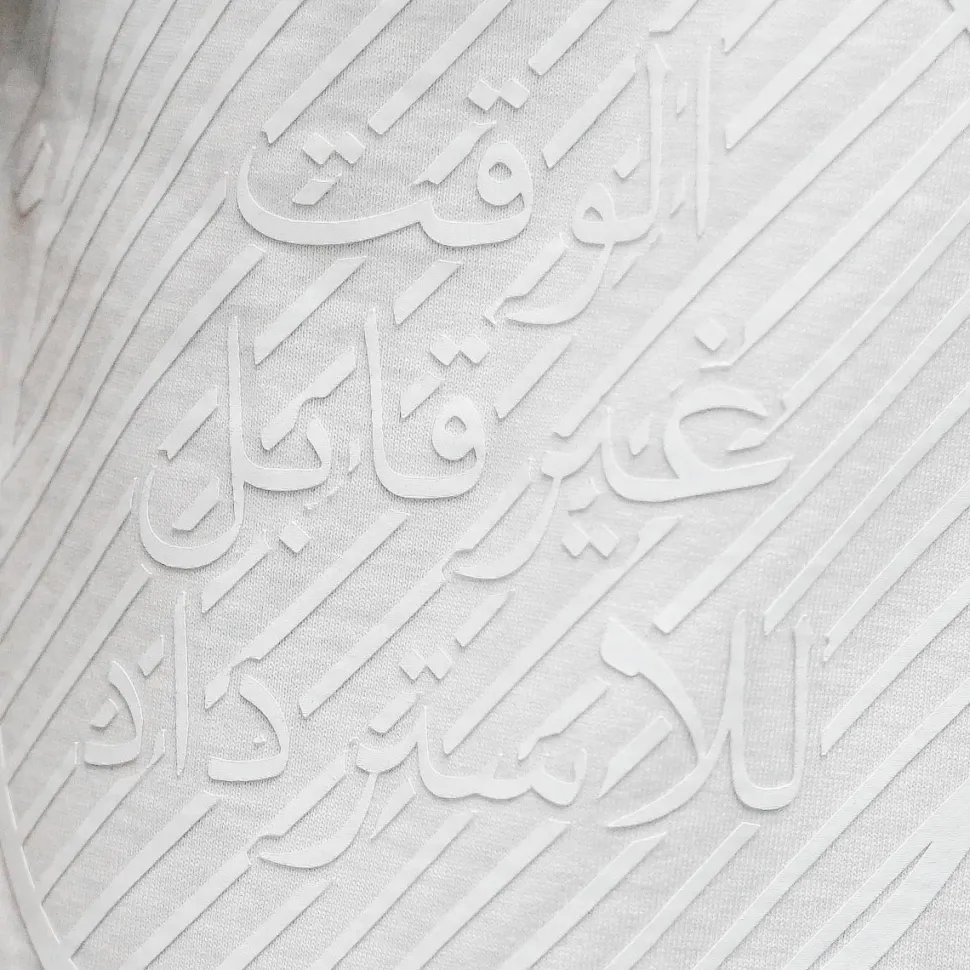 الوقت
غير قابل
للاسترداد